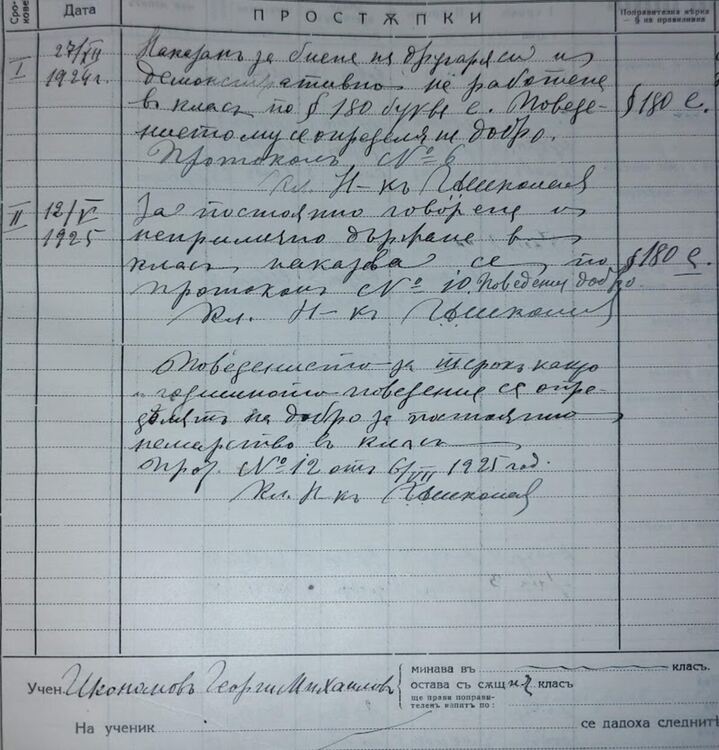 Сро-
кове
Дата
ПРОСТѪПКИ
Поправителна мѣрка
— § на правилника
I
27/XII
1924 г
Наказанъ за биене на другаря си и
демонстративно не работене
в класъ по § 180 буква е. Поведе-
нието му се определя на добро.
Протоколъ № 6
§ 180 е.
Кл. Н-къ
II
12/V
1925
За постоянно говорене и
неприлично държане в
класъ наказва се по
протоколъ № 10. Поведение добро.
§ 180 е.
Кл. Н-къ
Поведението за срокъ като
годишното поведение се опре-
дѣлятъ на добро за постоянно
немарство въ класъ
Прот. № 12 отъ 6/VII 1925 год.
Кл. Н-къ
Учен. Икономовъ Георги Михаиловъ
минава въ класъ.
остава съ сѫщ класъ
ще прави поправи-
теленъ изпитъ по:
На ученик
се дадоха следнитѣ